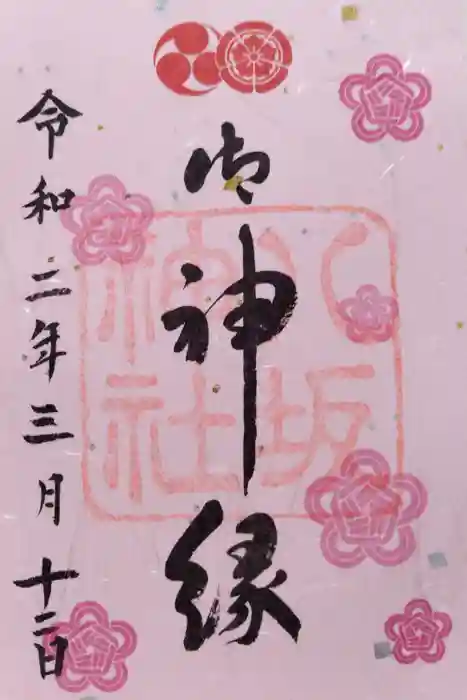 御神縁
八坂
神社
令和二年三月十二日